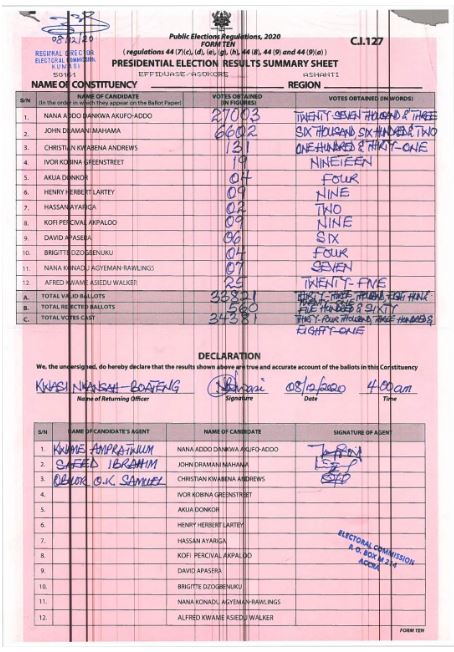 08/12/20
REGIONAL DIRECTOR
ELECTORAL COMMISSION
KUMASI
Public Elections Regulations, 2020
FORM TEN
C.I.127
( regulations 44 (7)(c), (d), (e), (g), (h), 44 (8), 44 (9) and 44 (9)(a) )
PRESIDENTIAL ELECTION RESULTS SUMMARY SHEET
EFFIDUASE/ASOKORE ASHANTI
NAME OF CONSTITUENCY REGION
S/N NAME OF CANDIDATE VOTES OBTAINED VOTES OBTAINED (IN WORDS)
(In the order in which they appear on the Ballot Paper) (IN FIGURES)
1. NANA ADDO DANKWA AKUFO-ADDO 27003 TWENTY-SEVEN THOUSAND & THREE
2. JOHN DRAMANI MAHAMA 6602 SIX THOUSAND SIX HUNDRED & TWO
3. CHRISTIAN KWABENA ANDREWS 131 ONE HUNDRED & THIRTY-ONE
4. IVOR KOBINA GREENSTREET 19 NINETEEN
5. AKUA DONKOR 04 FOUR
6. HENRY HERBERT LARTEY 09 NINE
7. HASSAN AYARIGA 02 TWO
8. KOFI PERCIVAL AKPALOO 09 NINE
9. DAVID APASERA 06 SIX
10. BRIGITTE DZOGBENUKU 04 FOUR
11. NANA KONADU AGYEMAN-RAWLINGS 07 SEVEN
12. ALFRED KWAME ASIEDU WALKER 25 TWENTY-FIVE
A. TOTAL VALID BALLOTS 33821 THIRTY-THREE THOUSAND, EIGHT HUND &
B. TOTAL REJECTED BALLOTS 560 FIVE HUNDRED & SIXTY
C. TOTAL VOTES CAST 34381 THIRTY-FOUR THOUSAND, THREE HUNDRED &
EIGHTY-ONE
DECLARATION
We, the undersigned, do hereby declare that the results shown above are true and accurate account of the ballots in this Constituency
KWASI NKANSAH-BOATENG 08/12/2020 4:00am
Name of Returning Officer Signature Date Time
S/N NAME OF CANDIDATE'S AGENT NAME OF CANDIDATE SIGNATURE OF AGENT
1. KWAME AMPRATWUM NANA ADDO DANKWA AKUFO-ADDO
2. SAEED IBRAHIM JOHN DRAMANI MAHAMA
3. O.K. SAMUEL CHRISTIAN KWABENA ANDREWS
4. IVOR KOBINA GREENSTREET
5. AKUA DONKOR
6. HENRY HERBERT LARTEY
7. HASSAN AYARIGA
8. KOFI PERCIVAL AKPALOO
9. DAVID APASERA
10. BRIGITTE DZOGBENUKU
11. NANA KONADU AGYEMAN-RAWLINGS
12. ALFRED KWAME ASIEDU WALKER
ELECTORAL COMMISSION
P. O. BOX M 214
ACCRA
FORM TEN